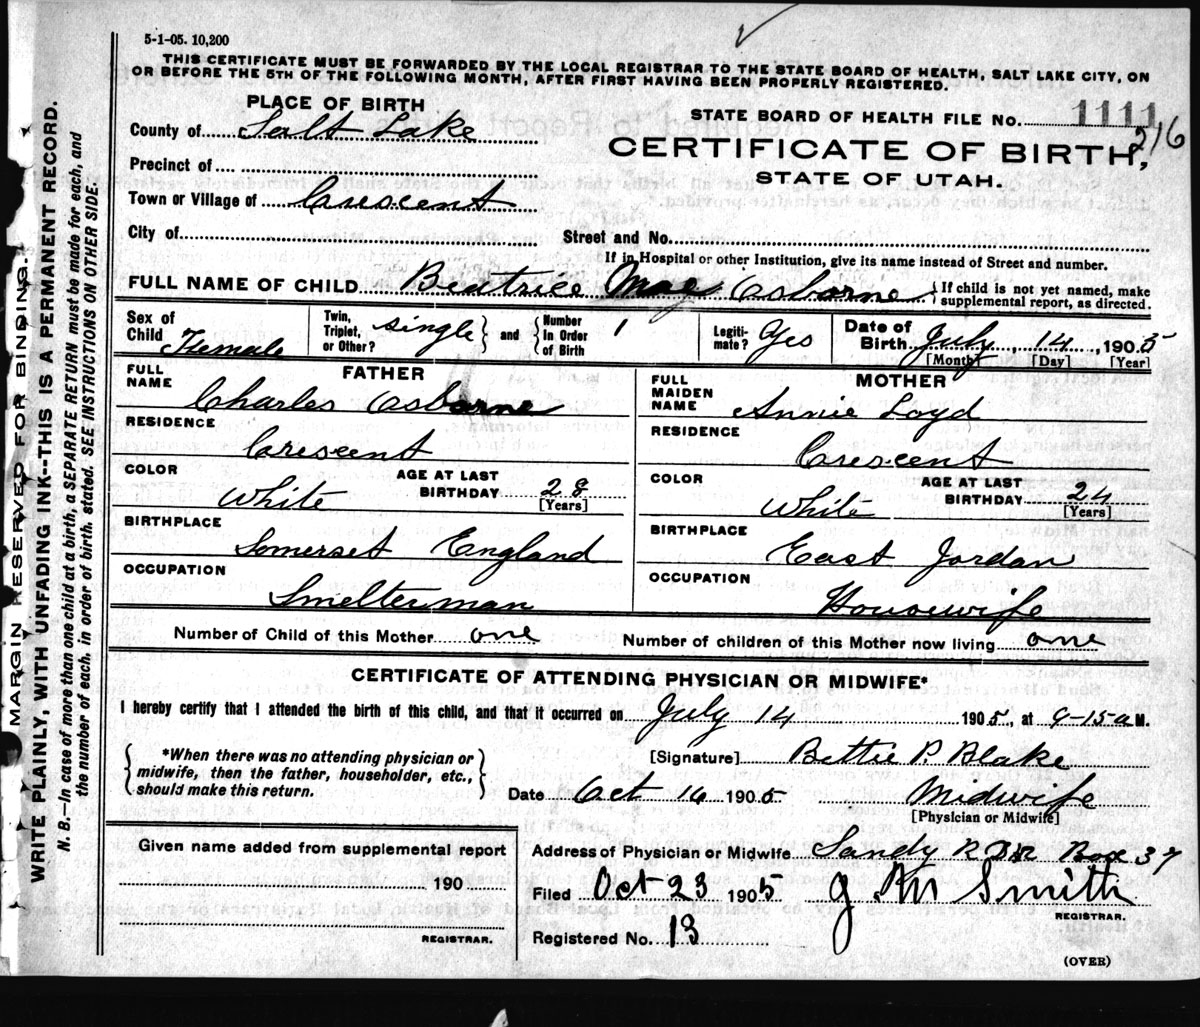 5-1-05. 10,200
THIS CERTIFICATE MUST BE FORWARDED BY THE LOCAL REGISTRAR TO THE STATE BOARD OF HEALTH, SALT LAKE CITY, ON
OR BEFORE THE 5TH OF THE FOLLOWING MONTH, AFTER FIRST HAVING BEEN PROPERLY REGISTERED.
PLACE OF BIRTH
County of Salt Lake
Precinct of
Town or Village of Crescent
City of
STATE BOARD OF HEALTH FILE No. 1111
216
CERTIFICATE OF BIRTH,
STATE OF UTAH.
Street and No.
If in Hospital or other Institution, give its name instead of Street and number.
FULL NAME OF CHILD Beatrice Mae Osborne { If child is not yet named, make
supplemental report, as directed.
Sex of Child Female
Twin, Triplet, or Other? single } and { Number In Order of Birth 1
Legitimate? Yes
Date of Birth July, 14, 1905
[Month] [Day] [Year]
FATHER
FULL NAME Charles Osborne
RESIDENCE Crescent
COLOR White AGE AT LAST BIRTHDAY 28 [Years]
BIRTHPLACE Somerset England
OCCUPATION Smelterman
MOTHER
FULL MAIDEN NAME Annie Loyd
RESIDENCE Crescent
COLOR White AGE AT LAST BIRTHDAY 24 [Years]
BIRTHPLACE East Jordan
OCCUPATION Housewife
Number of Child of this Mother one Number of children of this Mother now living one
CERTIFICATE OF ATTENDING PHYSICIAN OR MIDWIFE*
I hereby certify that I attended the birth of this child, and that it occurred on July 14 1905, at 9-15 a M.
{ *When there was no attending physician or
midwife, then the father, householder, etc.,
should make this return. }
[Signature] Bettie P. Blake
Date Oct 16 1905 Midwife
[Physician or Midwife]
Given name added from supplemental report
190
REGISTRAR.
Address of Physician or Midwife Sandy R Box 37
Filed Oct 23 1905 J M Smith
REGISTRAR.
Registered No. 13
(OVER)
MARGIN RESERVED FOR BINDING.
WRITE PLAINLY, WITH UNFADING INK--THIS IS A PERMANENT RECORD.
N. B.—In case of more than one child at a birth, a SEPARATE RETURN must be made for each, and
the number of each, in order of birth, stated. SEE INSTRUCTIONS ON OTHER SIDE.